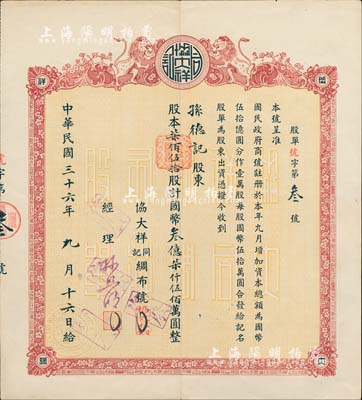 上海陽明拍賣
股單號字第叁號
本號呈准
國民政府商號註册於本年九月增加資本總額為國幣
伍拾億圓分作壹萬股每股國幣伍拾萬圓合發給記名
股單為股東出資憑證今收到
孫德記股東
股本柒佰伍拾股計國幣叁億柒仟伍佰萬圓整
協大祥同記綢布號
經理
中華民國三十六年九月十六日給